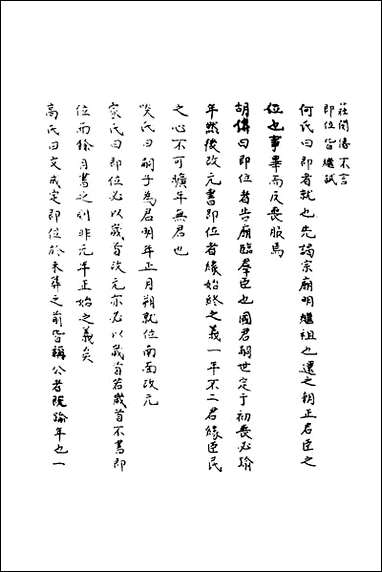 莊閔僖不言
即位皆繼弑
何氏曰即者就也先謁宗廟明繼祖也還之朝正君臣之
位也事畢而反喪服焉
胡傳曰即位者告廟臨羣臣也國君嗣世定于初喪必踰
年然後改元書即位者緣始終之義一年不二君緣臣民
之心不可曠年無君也
啖氏曰嗣子為君明年正月朔就位南面改元
家氏曰即位必以歲首改元亦必以歲首若歲首不書即
位而餘月書之則非元年正始之義矣
高氏曰文成定即位於未葬之前皆稱公者既踰年也一